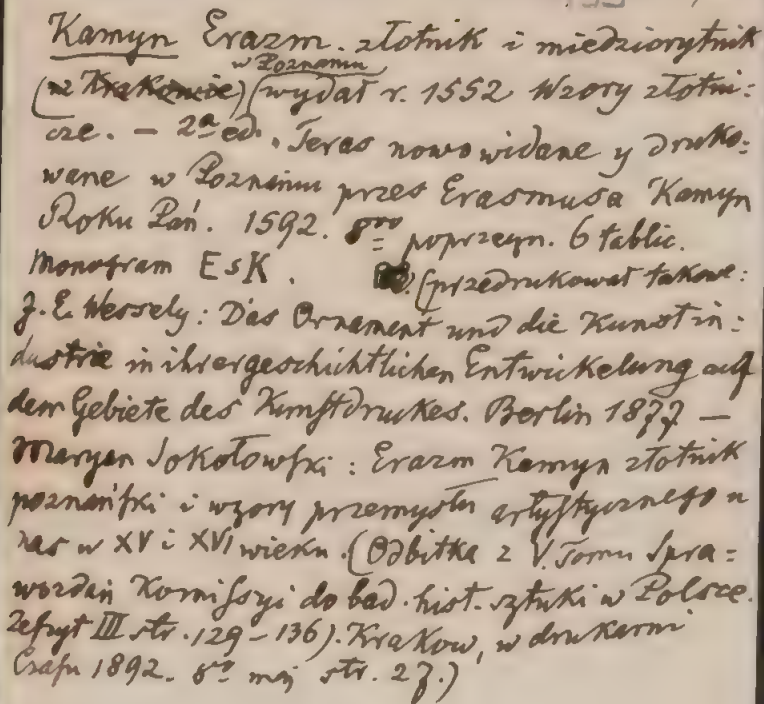 Kamyn Erazm. złotnik i miedziorytnik
w Poznaniu
(w Krakowie) (wydał r. 1552 Wzory złotni:
cze. — 2ª ed. Teras nowo widane y druko:
wane w Poznaniu przes Erasmusa Kamyn
Roku Pań. 1592. 8vo poprzeczn. 6 tablic.
Monogram EsK. (przedrukował takowe:
J. E. Wessely: Das Ornament und die Kunstin:
dustrie in ihrer geschichtlichen Entwickelung auf
dem Gebiete des Kunstdrukes. Berlin 1877 —
Maryan Sokołowski: Erazm Kamyn złotnik
poznański i wzory przemysłu artystycznego u
nas w XV i XVI wieku. (Odbitka z V. Tomu Spra=
wozdań Komissyi do bad. hist. sztuki w Polsce.
Zeszyt III str. 129–136). Krakow, w drukarni
Czasu 1892. str. 27.)